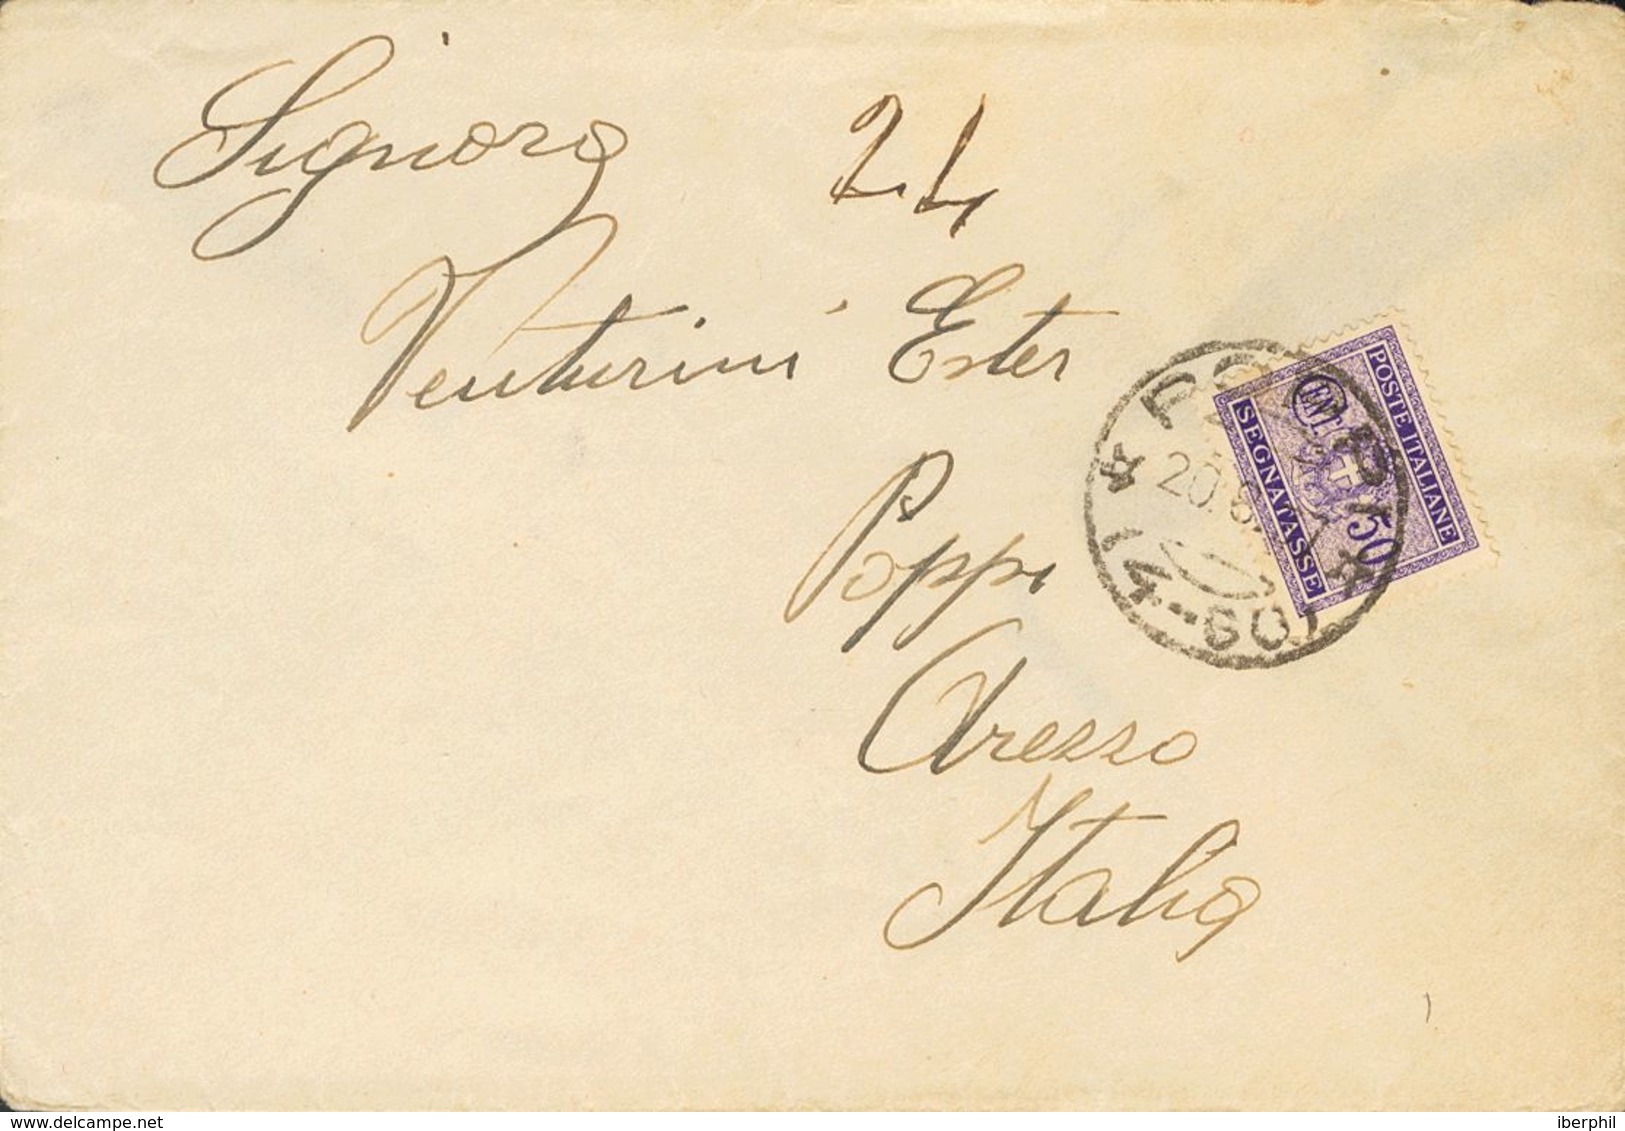 Signora
24
Venturini Ester
Poppi
Arezzo
Italia
POSTE ITALIANE
50
SEGNATASSE
POPPI
20.8.
(14-60)
www.delcampe.net
iberphil